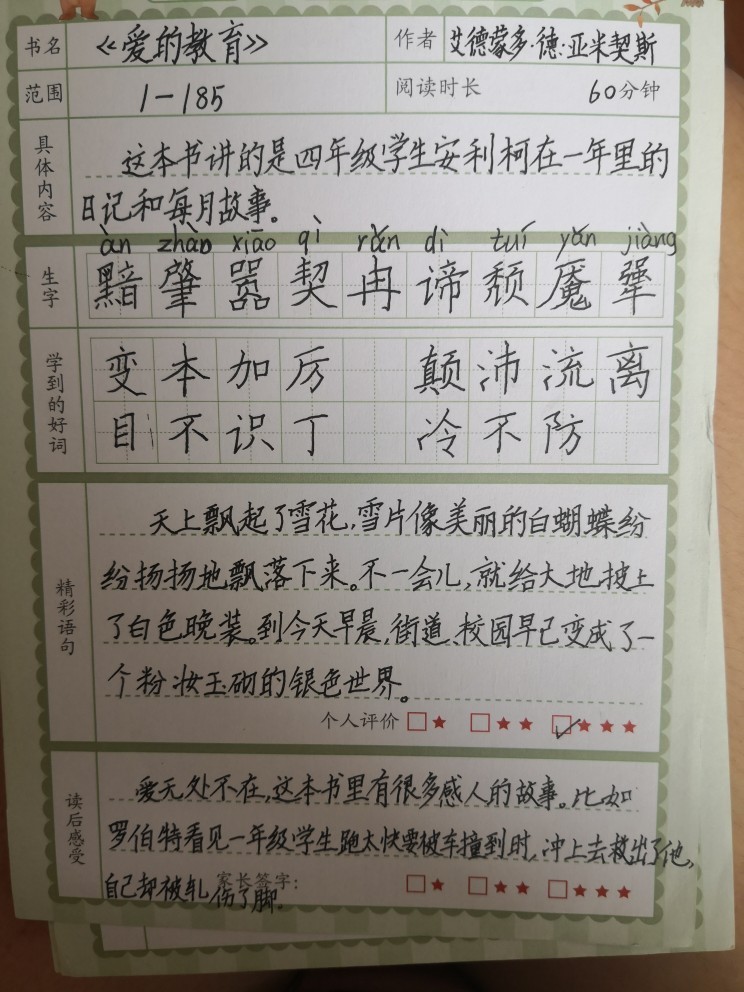 书名 《爱的教育》 作者 艾德蒙多·德·亚米契斯
范围 1-185 阅读时长 60分钟
具体内容
这本书讲的是四年级学生安利柯在一年里的
日记和每月故事。
生字
àn zhào xiāo qì rǎn dì tuí yǎn jiàng
黯 肇 嚣 契 冉 谛 颓 魇 犟
学到的好词
变本加厉 颠沛流离
目不识丁 冷不防
精彩语句
天上飘起了雪花,雪片像美丽的白蝴蝶纷
纷扬扬地飘落下来。不一会儿,就给大地披上
了白色晚装。到今天早晨,街道、校园早已变成了一
个粉妆玉砌的银色世界。
个人评价 □★ □★★ □★★★
读后感受
爱无处不在,这本书里有很多感人的故事。比如
罗伯特看见一年级学生跑太快要被车撞到时,冲上去救出了他,
自己却被轧伤了脚。
家长签字: □★ □★★ □★★★